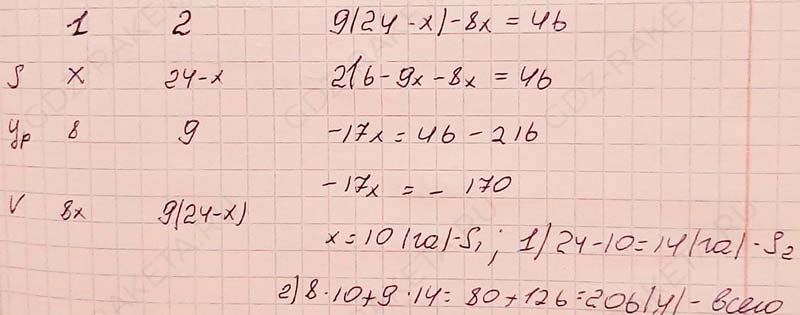 1 2 9(24-x)-8x=46
S x 24-x 216-9x-8x=46
Ур 8 9 -17x=46-216
-17x=-170
V 8x 9(24-x)
x=10(га)-S₁; 1) 24-10=14(га)-S₂
2) 8·10+9·14=80+126=206(ц)-всего